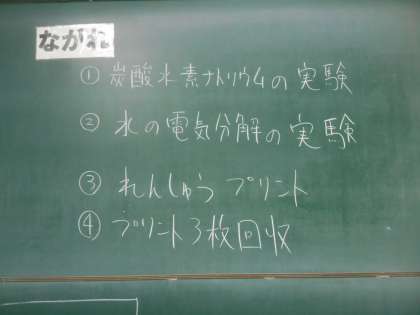 ながれ
① 炭酸水素ナトリウムの実験
② 水の電気分解の実験
③ れんしゅうプリント
④ プリント3枚回収